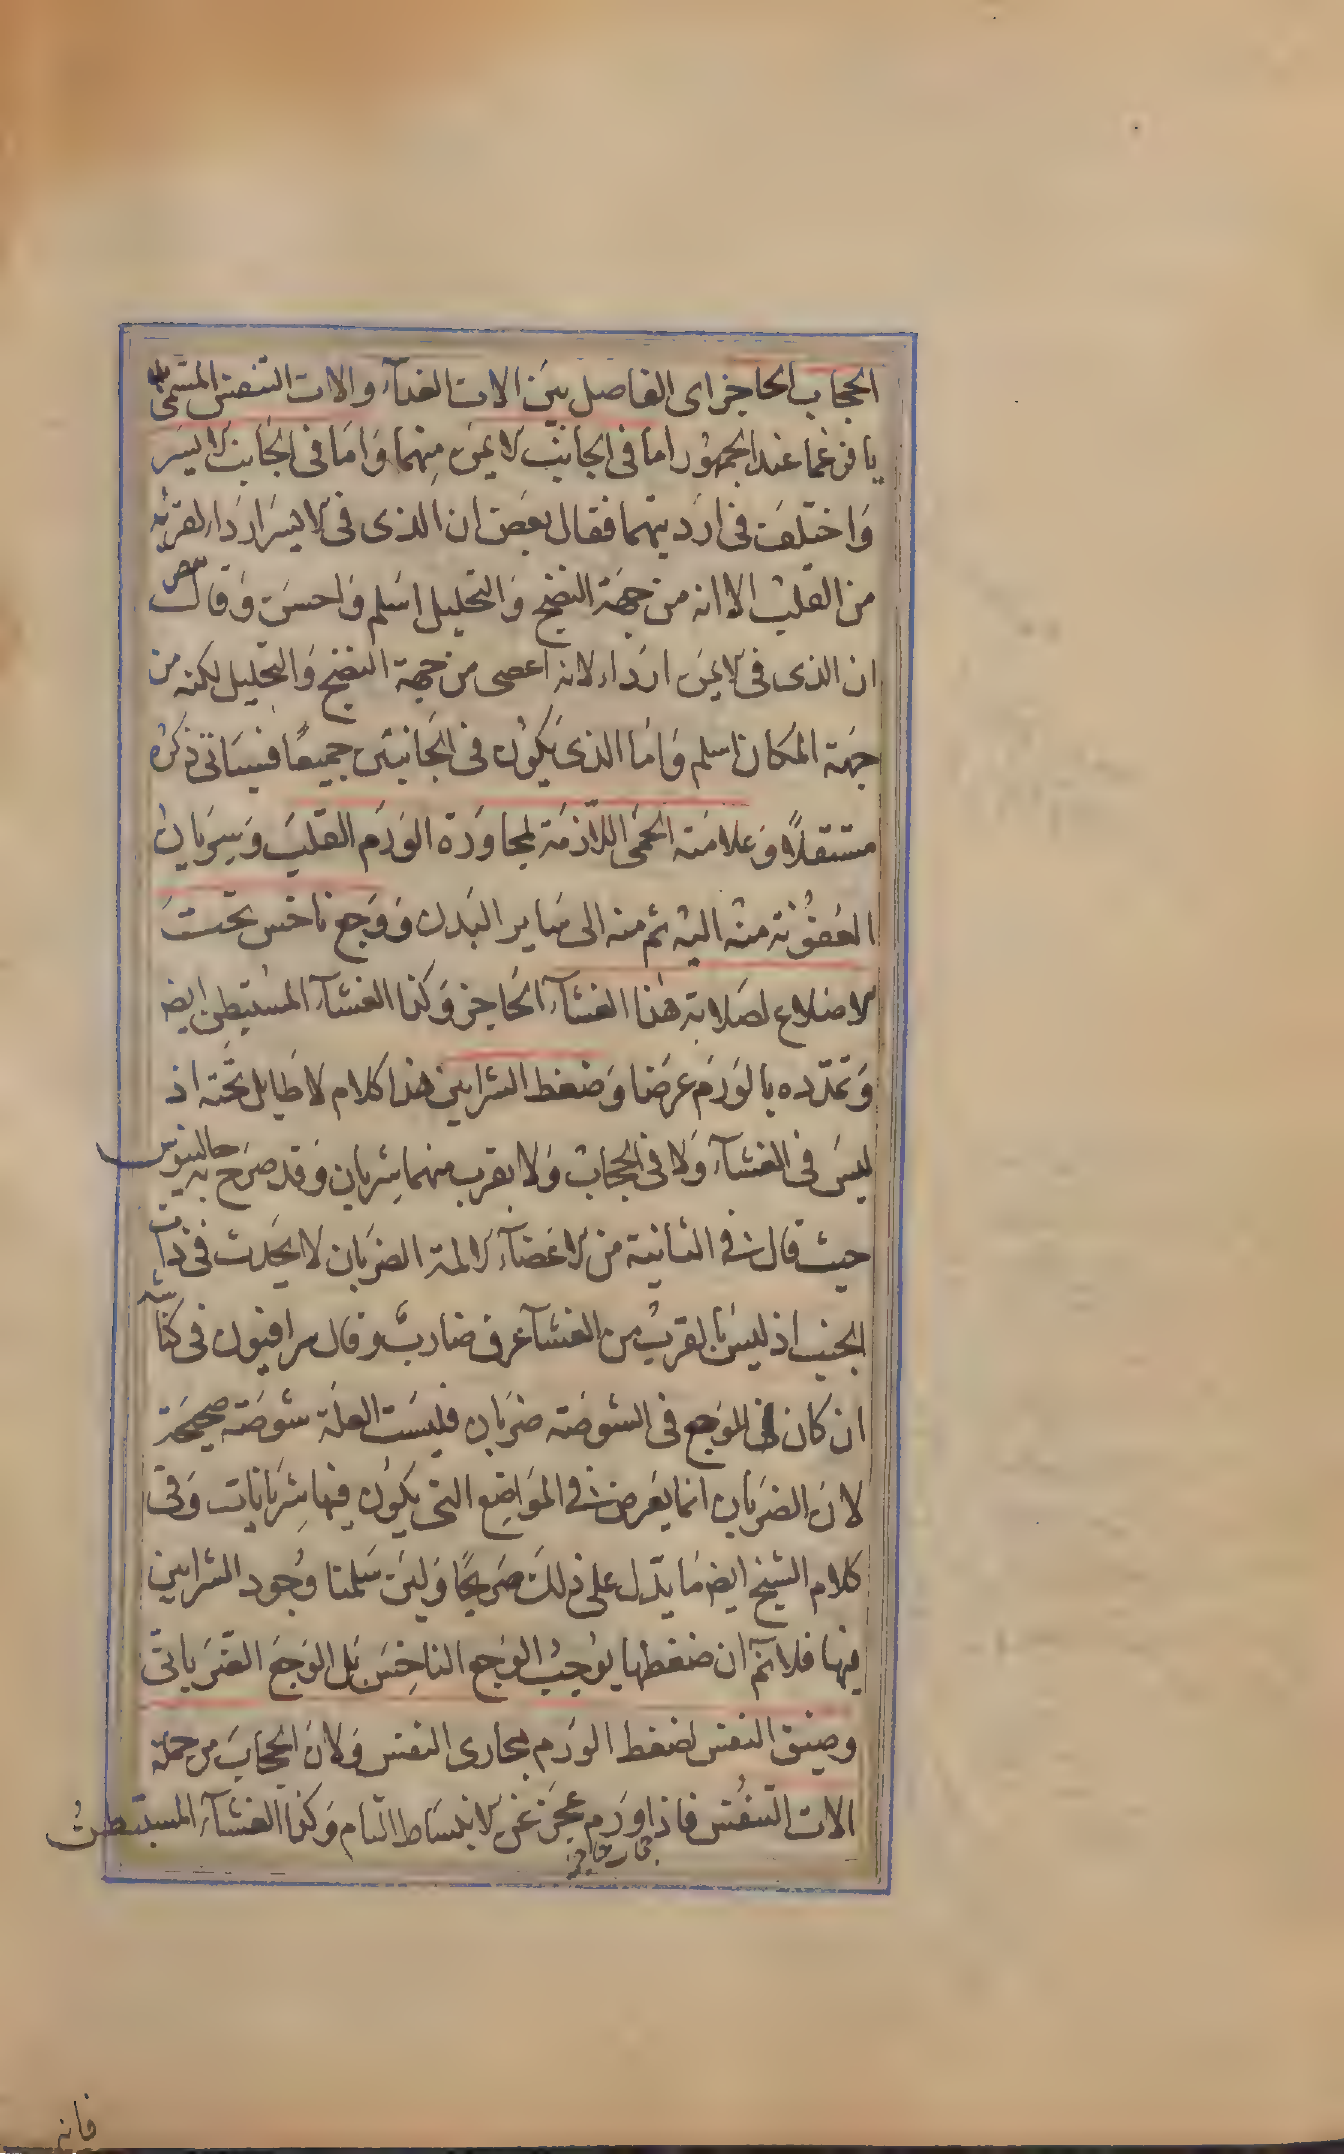 الحجاب الحاجز اى الفاصل بين الات الغذآء والات التنفس المسمى
يا فرغما عند الجمهور اما فى الجانب الايمن منهما وَاما فى الجانب الايسر
وَاختلف فى ارديتهما فقال بعض ان الذى فى الايسر اردا لقربه
من القلب الا انه من جهة النضج وَالتحليل اسلم وَاحسن وَقال بعض
ان الذى فى الايمن اردا لانه اعصى من جهة النضج وَالتحليل لكنه من
جهة المكان اسلم وَاما الذى يكون فى الجانبين جميعًا فسياتى ذكره
مستقلاً وَعلامته الحمى اللازمة لمجاورة الورم القلب وَسريان
العفونة منه اليه ثم منه الى ساير البدن وَوجع ناخس تحت
الاضلاع لصلابة هذا الغشآء الحاجز وَكذا الغشآء المستبطن ايضا
وَتمدده بالورم عرضا وَضغط الشرايين هذا كلام لا طايل تحته اذ
ليس فى الغشآء وَلا فى الحجاب وَلا بقرب منهما شريان وَقد صرح به جالينوس
حيث قال فى الثانية من الاعضآء الالمة الضربان لا يحدث فى ذات
الجنب اذ ليس بالقرب من الغشآ عرق ضارب وقال سرافيون فى كناشه
ان كان فى الوجع فى الشوصة ضربان فليست العلة شوصة صحيحة
لان الضربان انما يعرض فى المواضع التى يكون فيها شريانات وَفى
كلام الشيخ ايضا ما يدل على ذلك صريحًا وَلين سلمنا وجود الشرايين
فيها فلانم ان ضغطها يوجب الوجع الناخس بل الوجع الضربانى
وضيق النفس لضغط الورم مجارى النفس وَلان الحجاب من جملة
الات التنفس فاذا ورم عجز عن الانبساط التام وَكذا الغشآء المستبطن
فانه